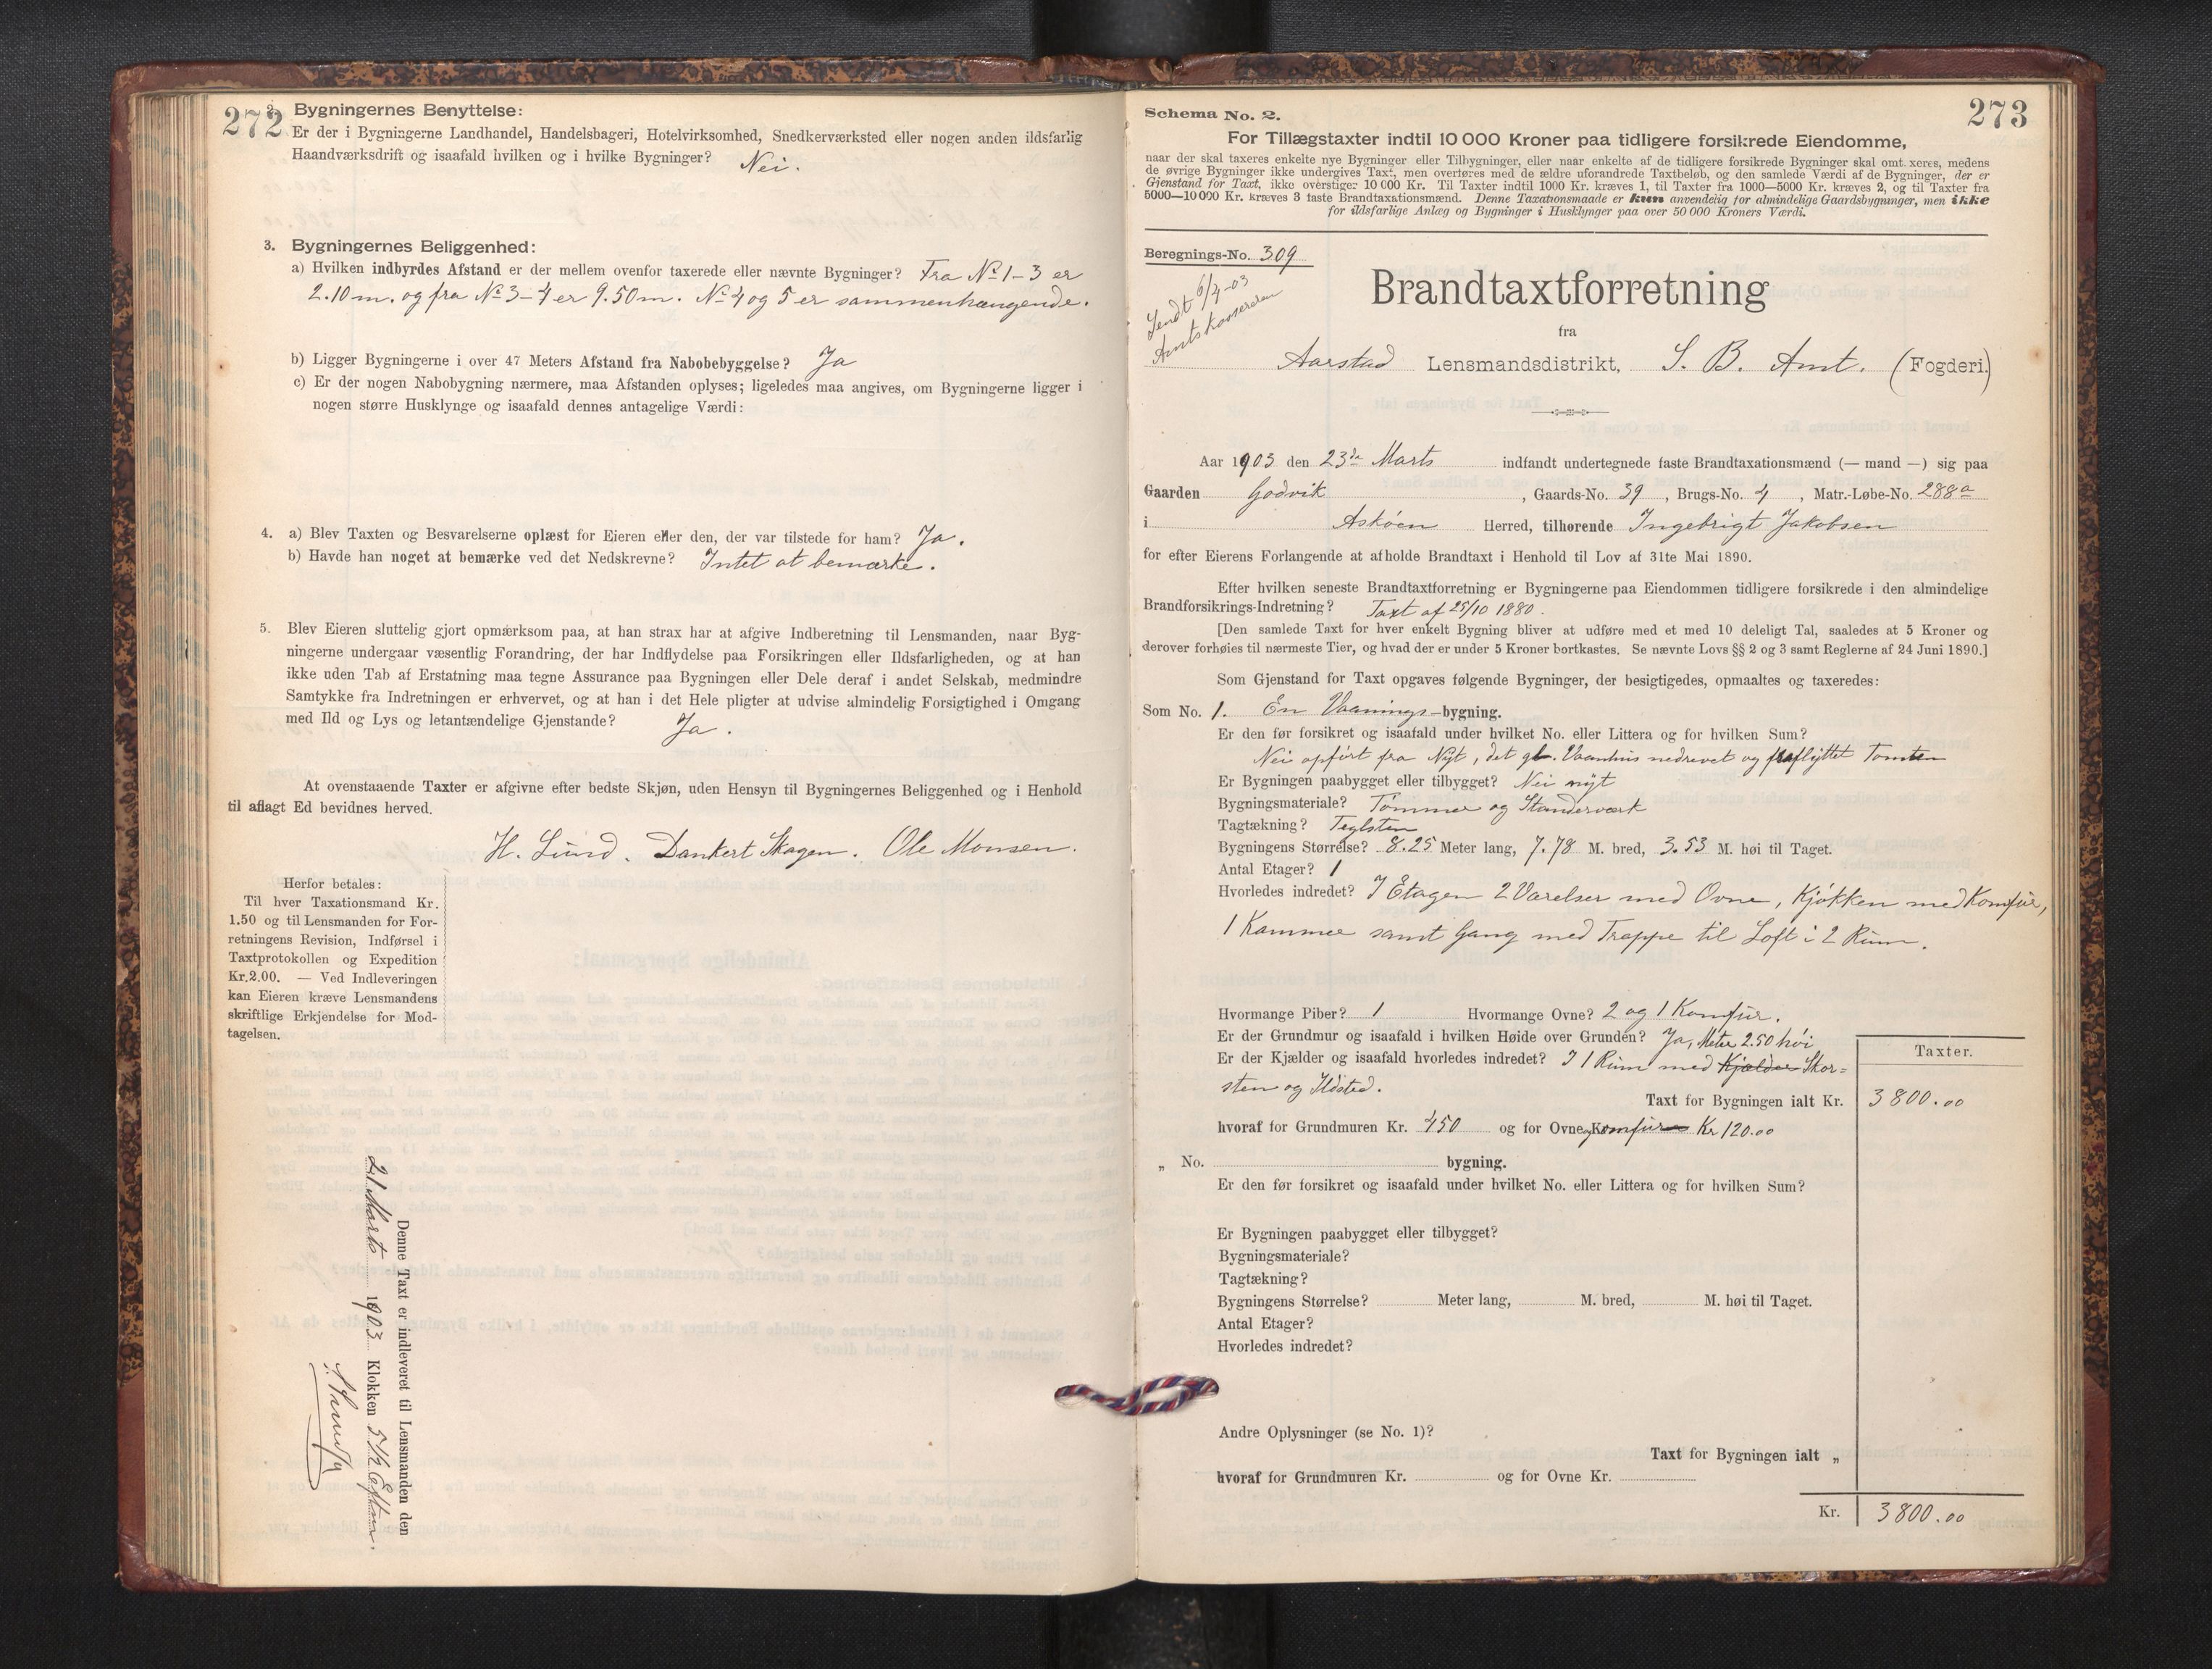 272
2. Bygningernes Benyttelse:
Er der i Bygningerne Landhandel, Handelsbageri, Hotelvirksomhed, Snedkerværksted eller nogen anden ildsfarlig
Haandværksdrift og isaafald hvilken og i hvilke Bygninger? Nei.
3. Bygningernes Beliggenhed:
a) Hvilken indbyrdes Afstand er der mellem ovenfor taxerede eller nævnte Bygninger? Fra No 1-3 er
2.10 m. og fra No 3-4 er 9.50 m. No 4 og 5 er sammenhængende.
b) Ligger Bygningerne i over 47 Meters Afstand fra Nabobebyggelse? Ja
c) Er der nogen Nabobygning nærmere, maa Afstanden oplyses; ligeledes maa angives, om Bygningerne ligger i
nogen større Husklynge og isaafald dennes antagelige Værdi:
4. a) Blev Taxten og Besvarelserne oplæst for Eieren eller den, der var tilstede for ham? Ja.
b) Havde han noget at bemærke ved det Nedskrevne? Intet at bemærke.
5. Blev Eieren sluttelig gjort opmærksom paa, at han strax har at afgive Indberetning til Lensmanden, naar Byg-
ningerne undergaar væsentlig Forandring, der har Indflydelse paa Forsikringen eller Ildsfarligheden, og at han
ikke uden Tab af Erstatning maa tegne Assurance paa Bygningen eller Dele deraf i andet Selskab, medmindre
Samtykke fra Indretningen er erhvervet, og at han i det Hele pligter at udvise almindelig Forsigtighed i Omgang
med Ild og Lys og letantændelige Gjenstande? Ja.
At ovenstaaende Taxter er afgivne efter bedste Skjøn, uden Hensyn til Bygningernes Beliggenhed og i Henhold
til aflagt Ed bevidnes herved.
H. Lund. Dankert Skagen. Ole Monsen.
Herfor betales:
Til hver Taxationsmand Kr.
1.50 og til Lensmanden for For-
retningens Revision, Indførsel i
Taxtprotokollen og Expedition
Kr. 2.00. — Ved Indleveringen
kan Eieren kræve Lensmandens
skriftlige Erkjendelse for Mod-
tagelsen.
Denne Taxt er indleveret til Lensmanden den
21 Marts 1903 Klokken 5 1/2 Eftm.
273
Schema No. 2.
For Tillægstaxter indtil 10 000 Kroner paa tidligere forsikrede Eiendomme,
naar der skal taxeres enkelte nye Bygninger eller Tilbygninger, eller naar enkelte af de tidligere forsikrede Bygninger skal omtaxeres, medens
de øvrige Bygninger ikke undergives Taxt, men overføres med de ældre uforandrede Taxtbeløb, og den samlede Værdi af de Bygninger, der er
Gjenstand for Taxt, ikke overstiger 10 000 Kr. Til Taxter indtil 1000 Kr. kræves 1, til Taxter fra 1000—5000 Kr. kræves 2, og til Taxter fra
5000—10 000 Kr. kræves 3 faste Brandtaxationsmænd. Denne Taxationsmaade er kun anvendelig for almindelige Gaardsbygninger, men ikke
for ildsfarlige Anlæg og Bygninger i Husklynger paa over 50 000 Kroners Værdi.
Beregnings-No. 309
Sendt 6/4-03
Brandtaxtforretning
fra
Aarstad Lensmandsdistrikt, S. B. Amt. (Fogderi.)
Aar 1903 den 23de Marts indfandt undertegnede faste Brandtaxationsmænd (— mand —) sig paa
Gaarden Godvik, Gaards-No. 39, Brugs-No. 4, Matr.-Løbe-No. 288a
i Askøen Herred, tilhørende Ingebrigt Jakobsen
for efter Eierens Forlangende at afholde Brandtaxt i Henhold til Lov af 31te Mai 1890.
Efter hvilken seneste Brandtaxtforretning er Bygningerne paa Eiendommen tidligere forsikrede i den almindelige
Brandforsikrings-Indretning? Taxt af 25/10 1880.
[Den samlede Taxt for hver enkelt Bygning bliver at udføre med et med 10 deleligt Tal, saaledes at 5 Kroner og
derover forhøies til nærmeste Tier, og hvad der er under 5 Kroner bortkastes. Se nævnte Lovs §§ 2 og 3 samt Reglerne af 24 Juni 1890.]
Som Gjenstand for Taxt opgaves følgende Bygninger, der besigtigedes, opmaaltes og taxeredes:
Som No. 1. En Vaanings-bygning.
Er den før forsikret og isaafald under hvilket No. eller Littera og for hvilken Sum?
Nei opført fra Nyt, det gl. Vaanhus nedrevet og fraflyttet Tomten
Er Bygningen paabygget eller tilbygget? Nei nyt
Bygningsmateriale? Tømmer og Standerværk
Tagtækning? Teglsten
Bygningens Størrelse? 8.25 Meter lang, 7.78 M. bred, 3.53 M. høi til Taget.
Antal Etager? 1
Hvorledes indredet? I Etagen 2 Værelser med Ovne, Kjøkken med Komfur,
1 Kammer samt Gang med Trappe til Loft i 2 Rum.
Hvormange Piber? 1 Hvormange Ovne? 2 og 1 Komfur.
Er der Grundmur og isaafald i hvilken Høide over Grunden? Ja, Meter 2.50 høi
Er der Kjælder og isaafald hvorledes indredet? I 1 Rum med Kjælder Skor-
sten og Ildsted.
Taxter.
Taxt for Bygningen ialt Kr. 3800.00
hvoraf for Grundmuren Kr. 450 og for Ovne og Komfur Kr 120.00
„ No. bygning.
Er den før forsikret og isaafald under hvilket No. eller Littera og for hvilken Sum?
Er Bygningen paabygget eller tilbygget?
Bygningsmateriale?
Tagtækning?
Bygningens Størrelse? Meter lang, M. bred, M. høi til Taget.
Antal Etager?
Hvorledes indredet?
Andre Oplysninger (se No. 1)?
Taxt for Bygningen ialt „
hvoraf for Grundmuren Kr. og for Ovne Kr.
Kr. 3800.00